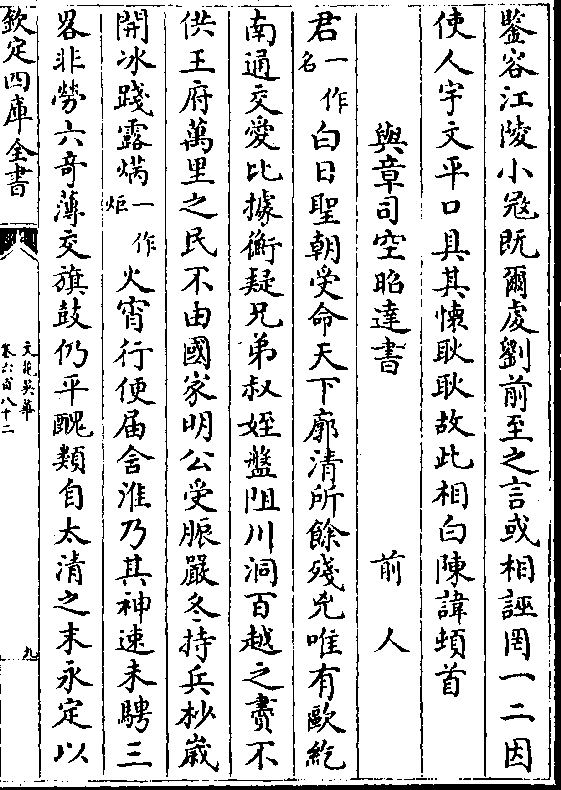 鑒容江陵小冦既爾虔劉前至之言或相誣罔一二因
使人宇文平口具其懐耿耿故此相白陳諱頓首
與章司空昭達書 前人
君一作名白日聖朝受命天下廓清所餘殘兇唯有歐紇
南通交愛北據衡疑兄弟叔姪盤阻川洞百越之賮不
供王府萬里之民不由國家明公受脤嚴冬持兵杪歲
開氷踐露焫一作炬火宵行便届舍淮乃其神速未騁三
畧非勞六奇薄交旗鼓仍平醜類自太清之末永定以
欽定四庫全書
文苑英華
卷六百八十二
九